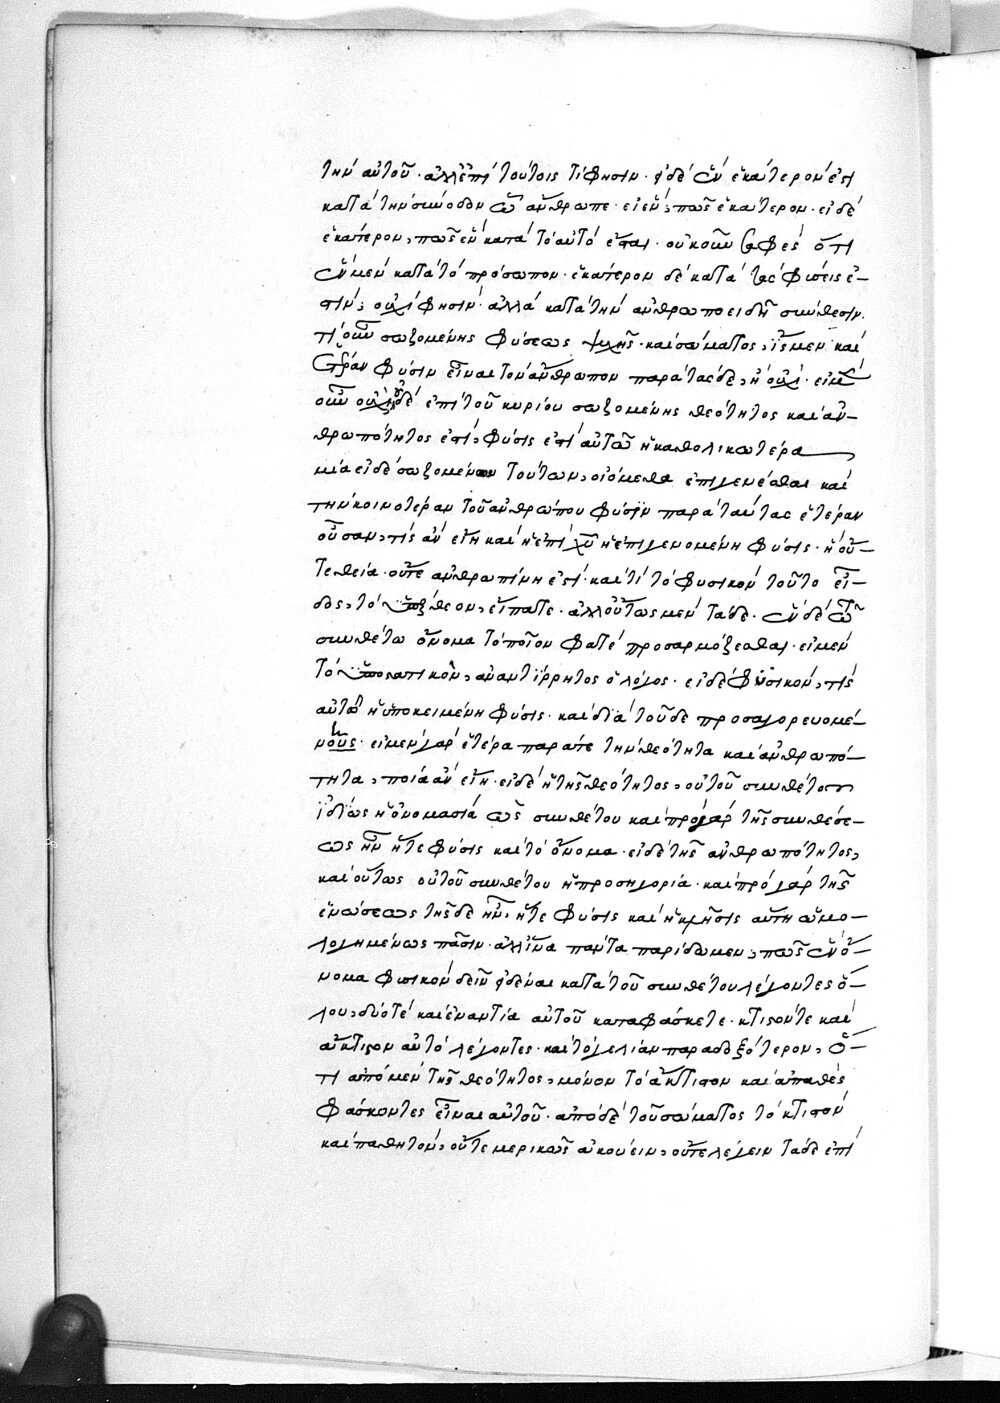 τὴν αὐτοῦ· ἀλλ' ἐπὶ τούτοις τί φησιν· εἰ δὲ ἓν ἑκάτερον ἐστὶ
κατὰ τὴν σύνοδον ὦ ἄνθρωπε· εἰ ἓν, πῶς ἑκάτερον· εἰ δὲ
ἑκάτερον, πῶς ἓν κατὰ τὸ αὐτὸ ἔσται· οὐκοῦν ὅτι
ἓν μὲν κατὰ τὸ πρόσωπον· ἑκάτερον δὲ κατὰ τὰς φύσεις ἐ-
στίν; οὐχί φησιν· ἀλλὰ κατὰ τὴν ἀνθρωποειδῆ σύνθεσιν.
τί οὖν σωζομένης φύσεως ψυχῆς· καὶ σώματος, ἴσμεν καὶ
ἑτέραν φύσιν εἶναι τὸν ἄνθρωπον παρὰ τάσδε, ἢ οὐχί· εἰ μὲν
οὖν οὐχὶ οὐδὲ ἐπὶ τοῦ κυρίου σωζομένης θεότητος καὶ ἀν-
θρωπότητος ἐστὶ, φύσις ἐπ' αὐτῶ ἡ καθολικωτέρα
μία εἰ δὲ σωζομένων τούτων, οἰόμεθα ἐπιγενέσθαι καὶ
τὴν κοινοτέραν τοῦ ἀνθρώπου φύσιν παρὰ ταύτας ἑτέραν
οὖσαν, τίς ἂν εἴη καὶ ἡ ἐπὶ χυ ἡ ἐπιγενομένη φύσις· ἢ οὔ-
τε θεία· οὔτε ἀνθρωπίνη ἐστί· καὶ τί τὸ φυσικὸν τοῦτο εἶ-
δος, τὸ εἴπατε· ἀλλ' οὕτως μὲν τάδε· ἓν δὲ τῶ
συνθέτω ὄνομα τὸ ποῖον φατὲ προσαρμόζεσθαι· εἰ μὲν
τὸ ὑποστατικὸν, ἀναντίρρητος ὁ λόγος· εἰ δὲ φυσικὸν, τίς
αὐτῶ ἡ ὑποκειμένη φύσις· καὶ διὰ τοῦδε προσαγορευομέ-
νους· εἰ μὲν γὰρ ἑτέρα παρά τε τὴν θεότητα καὶ ἀνθρωπό-
τητα, ποία ἂν εἴη· εἰ δὲ ἡ τῆς θεότητος, οὐ τοῦ συνθέτου
ἰδίως ἡ ὀνομασία ὡς συνθέτου καὶ πρὸ γὰρ τῆς συνθέσε-
ως ἦν ἥ τε φύσις καὶ τὸ ὄνομα· εἰ δὲ τῆς ἀνθρωπότητος,
καὶ οὕτως οὐ τοῦ συνθέτου ἡ προσηγορία· καὶ πρὸ γὰρ τῆς
ἑνώσεως τῆσδε ἦν, ἥ τε φύσις καὶ ἡ κλῆσις αὕτη ὡμο-
λογημένως πᾶσιν· ἀλλ' ἵνα πάντα παρίδωμεν, πῶς ἓν ὄ-
νομα φυσικὸν δεῖν κατὰ τοῦ συνθέτου λέγοντες ὅ-
λου, δύο τε καὶ ἐναντία αὐτοῦ καταφάσκετε· κτιστόν τε καὶ
ἄκτιστον αὐτὸ λέγοντες· καὶ τό γε λίαν παραδοξότερον, ὅ-
τι ἀπὸ μὲν τῆς θεότητος, μόνον τὸ ἄκτιστον καὶ ἀπαθὲς
φάσκοντες εἶναι αὐτοῦ· ἀπὸ δὲ τοῦ σώματος τὸ κτιστὸν
καὶ παθητὸν, οὔτε μερικῶς ἀκούειν, οὔτε λέγειν τάδε ἐπὶ